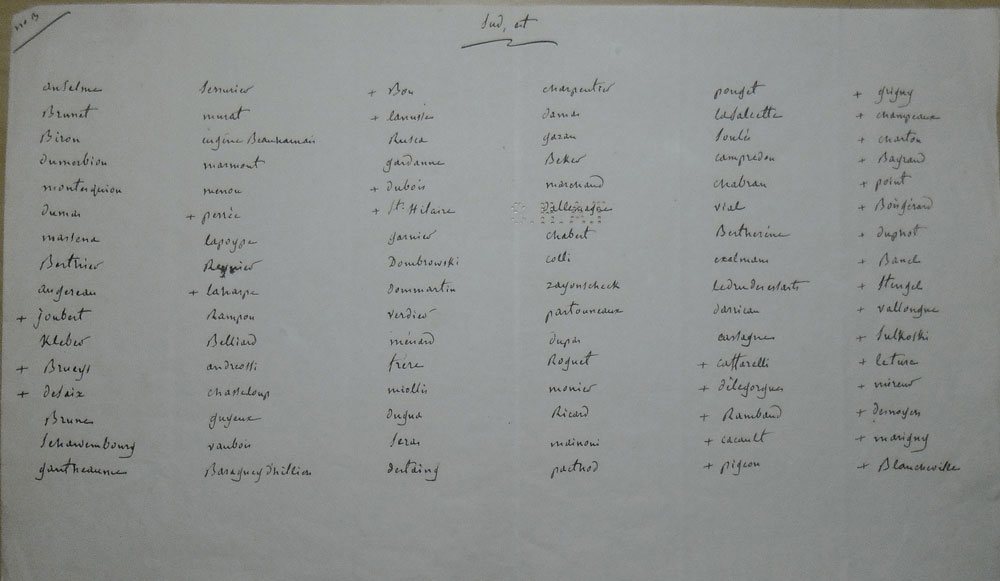 no 3
Sud, est
anselme serrurier + Bon charpentier pouget + grigny
Brunet murat + lanusse damas Lasalcette + champeaux
Biron eugène Beauharnais Rusca gazan Soulés + charton
dumerbion marmont gardanne Beker campredon + Bayrand
montesquiou menou + Dubois marchand chabran + point
dumas + perrée + St. Hilaire Dallemagne vial + Bougérard
massena lapoype garnier chabert Berthezène + duphot
Berthier Reynier Dombrowski colli exelmans + Banel
augereau + laharpe Dommartin zayonscheck Ledru des essarts + Stengel
+ joubert Rampon verdier partouneaux darricau + vallongue
Kleber Belliard ménard dupas cassagne + Sulkoski
+ Brueys andreossi frère Roguet + caffarelli + leturc
+ desaix chasseloup miollis monier + délegorgues + mireur
Brune guyeux dugua Ricard + Rambaud + demoyers
Schawembourg vaubois Seras mainoni + cacault + marigny
gantheaume Baraguey d'hilliers destaing pacthod + pigeon + Blancheville